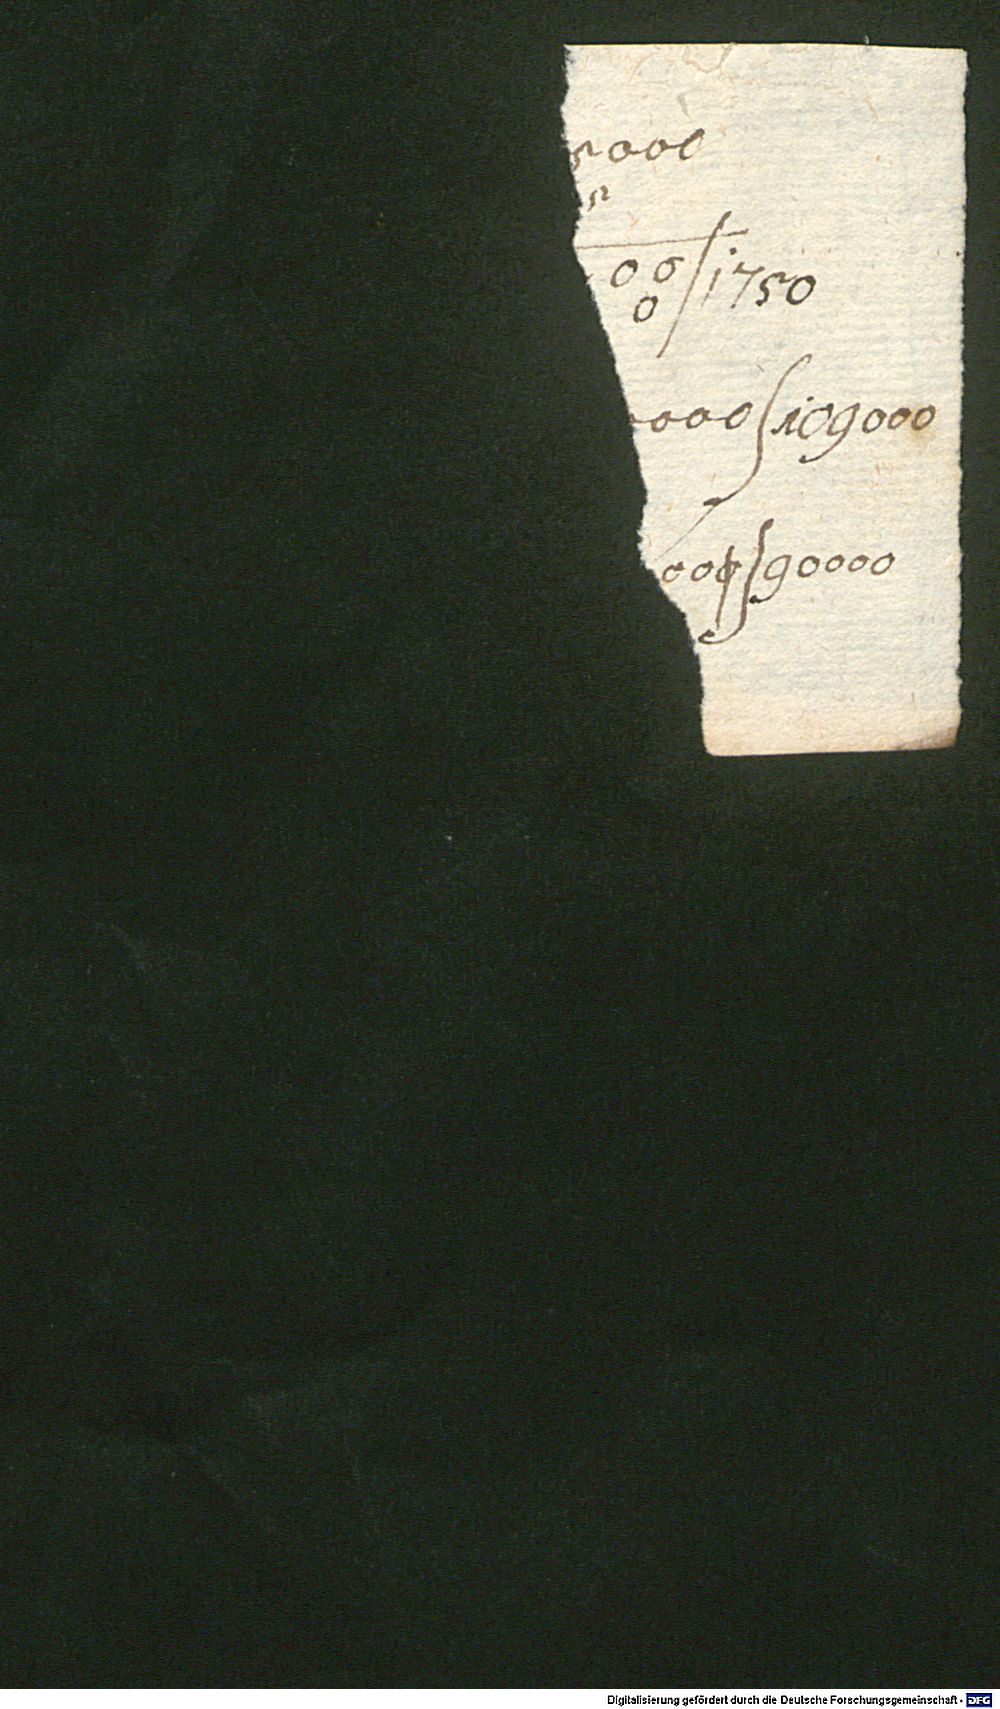 5000
5
00/1750
0
000∫109000
000∫90000
Digitalisierung gefördert durch die Deutsche Forschungsgemeinschaft - DFG